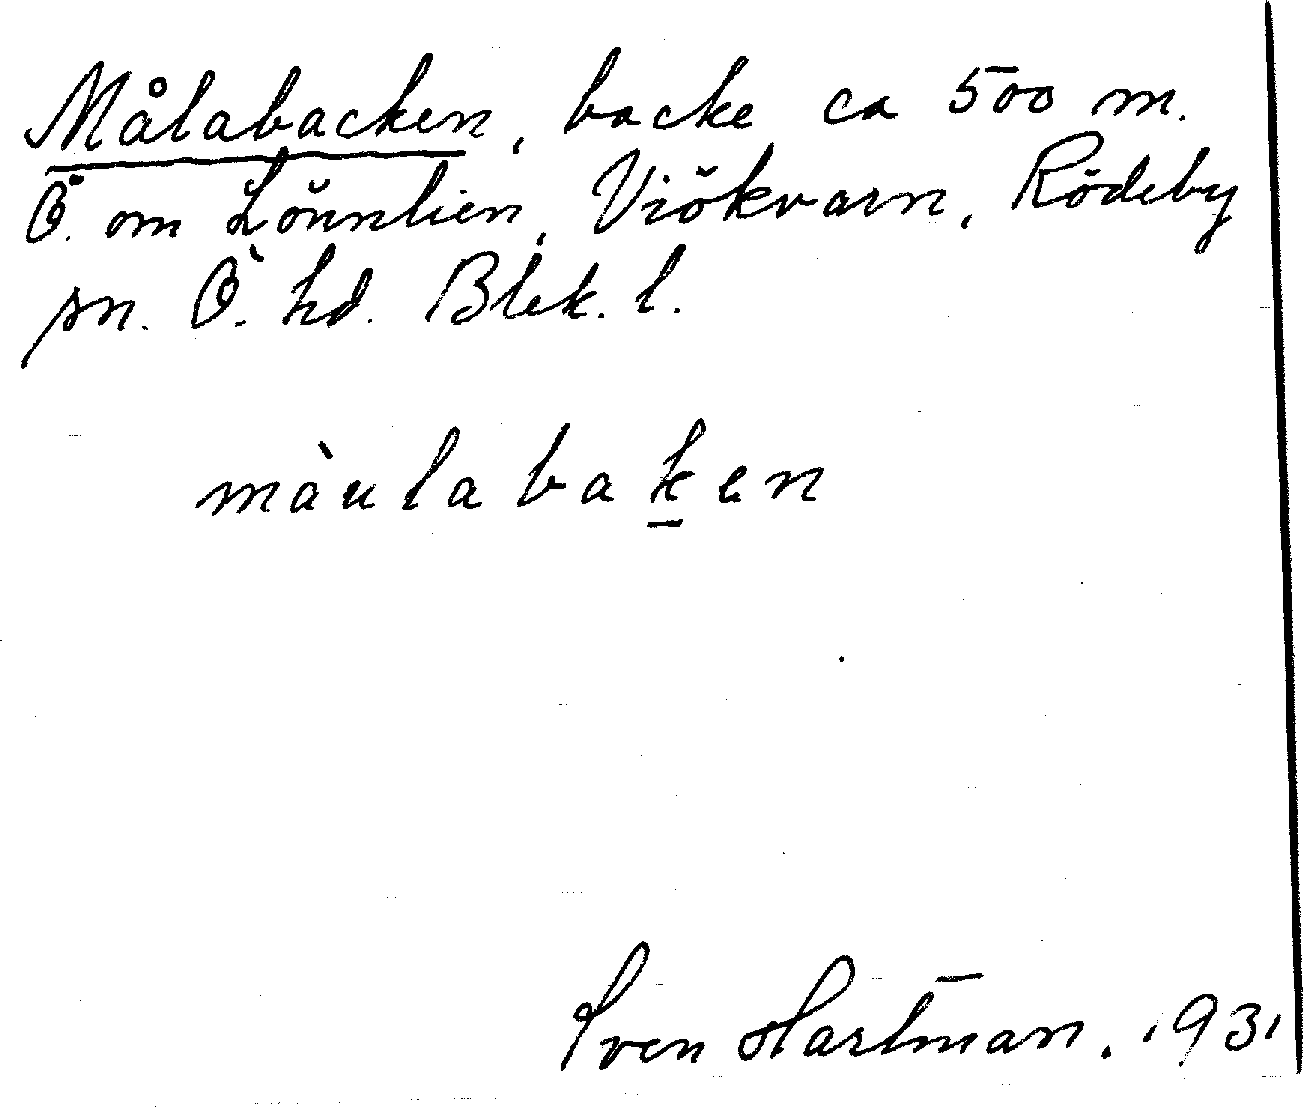 Målabacken, backe ca 500 m.
Ö. om Lönnlien, Viökvarn, Rödeby
sn. Ö. hd. Blek. l.
màulabaḵen
Sven Hartman. 1931